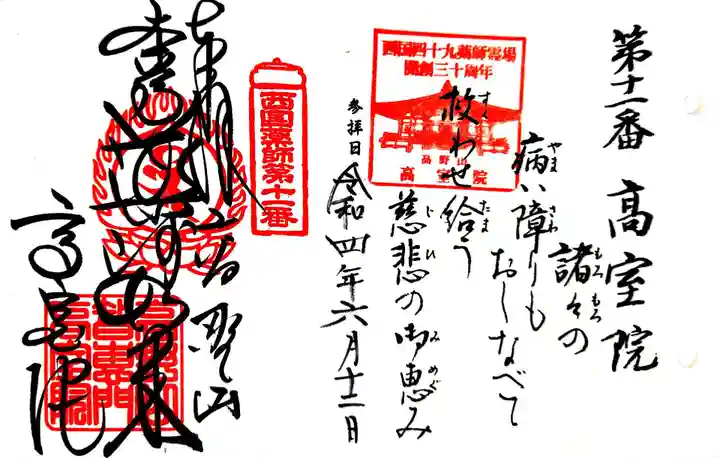 第十一番 高室院
諸々の
もろ もろ
病い障りも
やま さわ
おしなべて
救わせ給う
すく たま
慈悲の御恵み
じひ みめぐ
西国四十九薬師霊場
開創三十周年
高野山
高室院
参拝日 令和四年六月十二日
西国薬師第十一番
奉拝
高野山
高室院